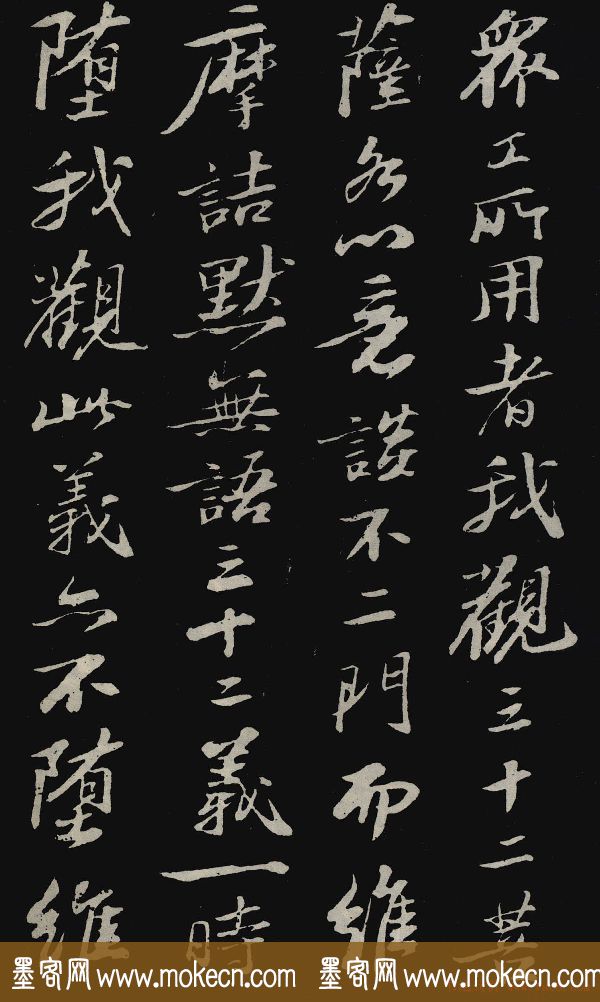 眾工所用者我觀三十二菩
薩各以意談不二門而維
摩詰默無語三十二義一時
墮我觀此義亦不墮維
墨客网 www.mokecn.com 墨客网 www.mokecn.com